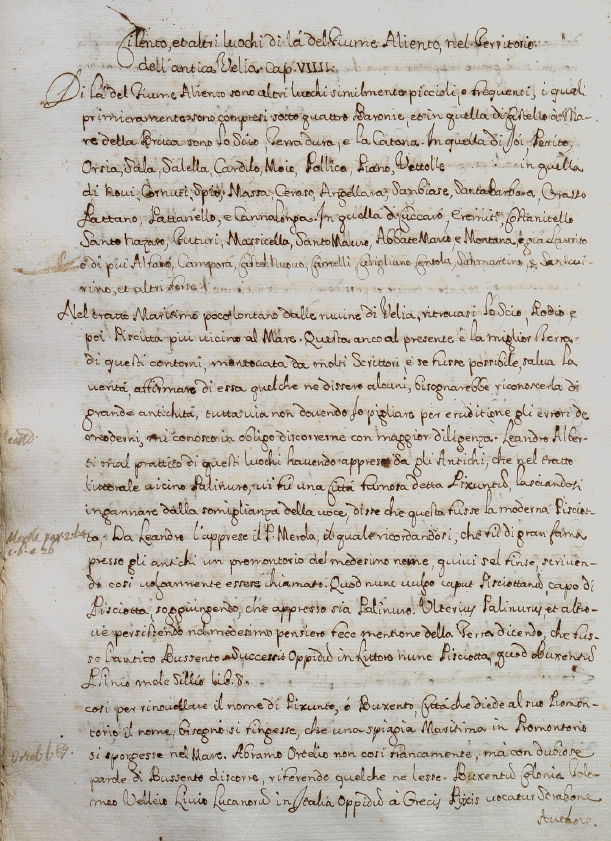 Cilento, et altri luochi di la del Fiume Aliento, nel Territorio
dell'antica Velia. Cap. VIIII.
Di la del Fiume Aliento sono altri luochi similmente piccioli, e frequenti, i quali
primieramente sono compresi sotto quattro Baronie, et in quella di
re della Bruca sono lo Scio Terradura, e la Catona. In quella di Perito,
Orsia, Sala, Salella, Cardilo, Moio, Pollico, Vettolle in quella
di Novi, Cornuti, Spio, Massa, Ceraso, Angellara, Sanbiase, Santabarbara,
Lattano, Lattaniello, e Cannalonga. In quella di Cuccaro,
Santo Nazaro, Futuri, Massicella, Santo Mauro, Abbate Marco e Montana, e già Laurito
e di piu Alfano, Campora, Castel Nuovo, Sanmartino,
rino, et altri forse
Nel tratto Maritimo poco lontano dalle ruine di Velia, ritrovasi lo Scio, Rodio, e
poi Pisciotta piu vicino al Mare. Questa anco al presente è la miglior Terra
di questi contorni, mentovata da molti Scrittori, e se fusse possibile, salva la
verità, affirmare di essa quelche ne dissero alcuni, bisognarebbe riconoscerla di
grande antichità, tuttavia non dovendo Io pigliare per eruditione gli errori de
moderni, mi conosco in obligo discorrerne con maggior diligenza. Leandro Alber-
ti mal prattico di questi luochi havendo appreso da gli Antichi, che nel tratto
littorale vicino Palinuro, vi fu una Città famosa detta Pixuntu, lasciandosi
ingannare dalla somiglianza della voce, disse che questa fusse la moderna Pisciot-
ta. Da Leandro l'apprese il P. Merola, il quale ricordandosi, che fu di gran fama
presso gli antichi un promontorio del medesimo nome, quivi sel finse, scriven-
do così volgarmente essere chiamato. Quod nunc vulgo caput Pisciottanu, capo di
Pisciotta soggiungendo, che appresso sia Palinuro. Ulterius Palinurus, et altro-
ve persistendo nel medesimo pensiero fece mentione della Terra dicendo, che fus-
se l'antico Bussento Successit Oppidu in littore nunc Pisciotta, quod Buxentu
Plinio mele Silio lib. 8.
così per rinovellare il nome di Pixunto, ò Buxento, Città che diede al suo Promon-
torio il nome, bisognò si fingesse, che una spiagia Maritima in Promontorio
si sporgesse nel Mare. Abramo Ortelio non così francamente, ma con dubiose
parole di Bussento discorre, riferendo quelche ne lesse. Buxentu Colonia Tole-
meo Velleio Livio Lucanoru in Italia Oppidu à Grecis Pyxis vocatur Strabone
Authore.